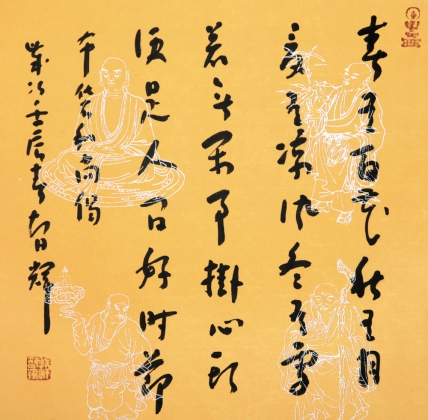 春有百花秋有月
夏有凉风冬有雪
若无闲事掛心头
便是人间好时節
和尚偈
歲次壬辰春 輝